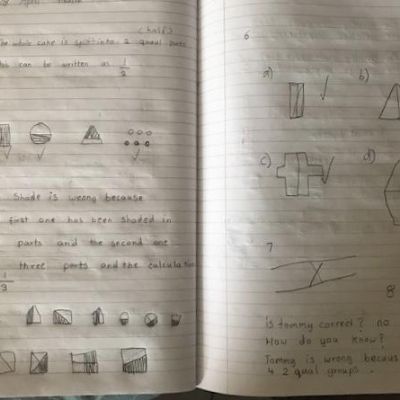 April
(half)
The whole cake is split into 2 equal parts
can be written as 1/2
Shade is wrong because
first one has been shaded in
parts and the second one
three parts and the calculation
1/3
6
a)
b)
c)
d)
7
8
is tommy correct? no
How do you know?
Tommy is wrong becaus
4 2 qual groups.